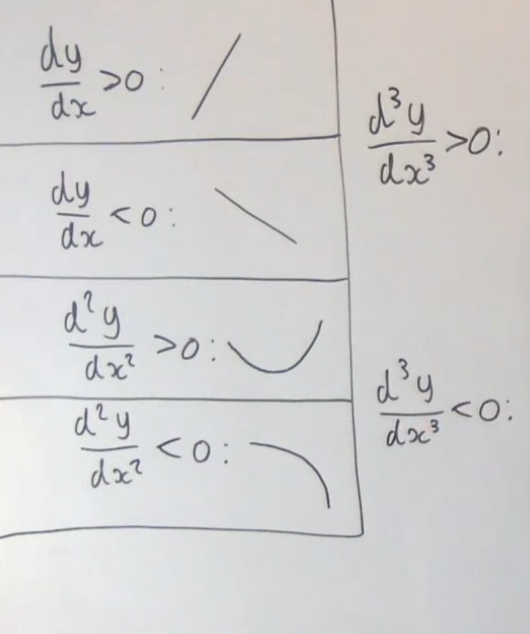 dy/dx >0:
dy/dx <0:
d²y/dx² >0:
d²y/dx² <0:
d³y/dx³ >0:
d³y/dx³ <0: